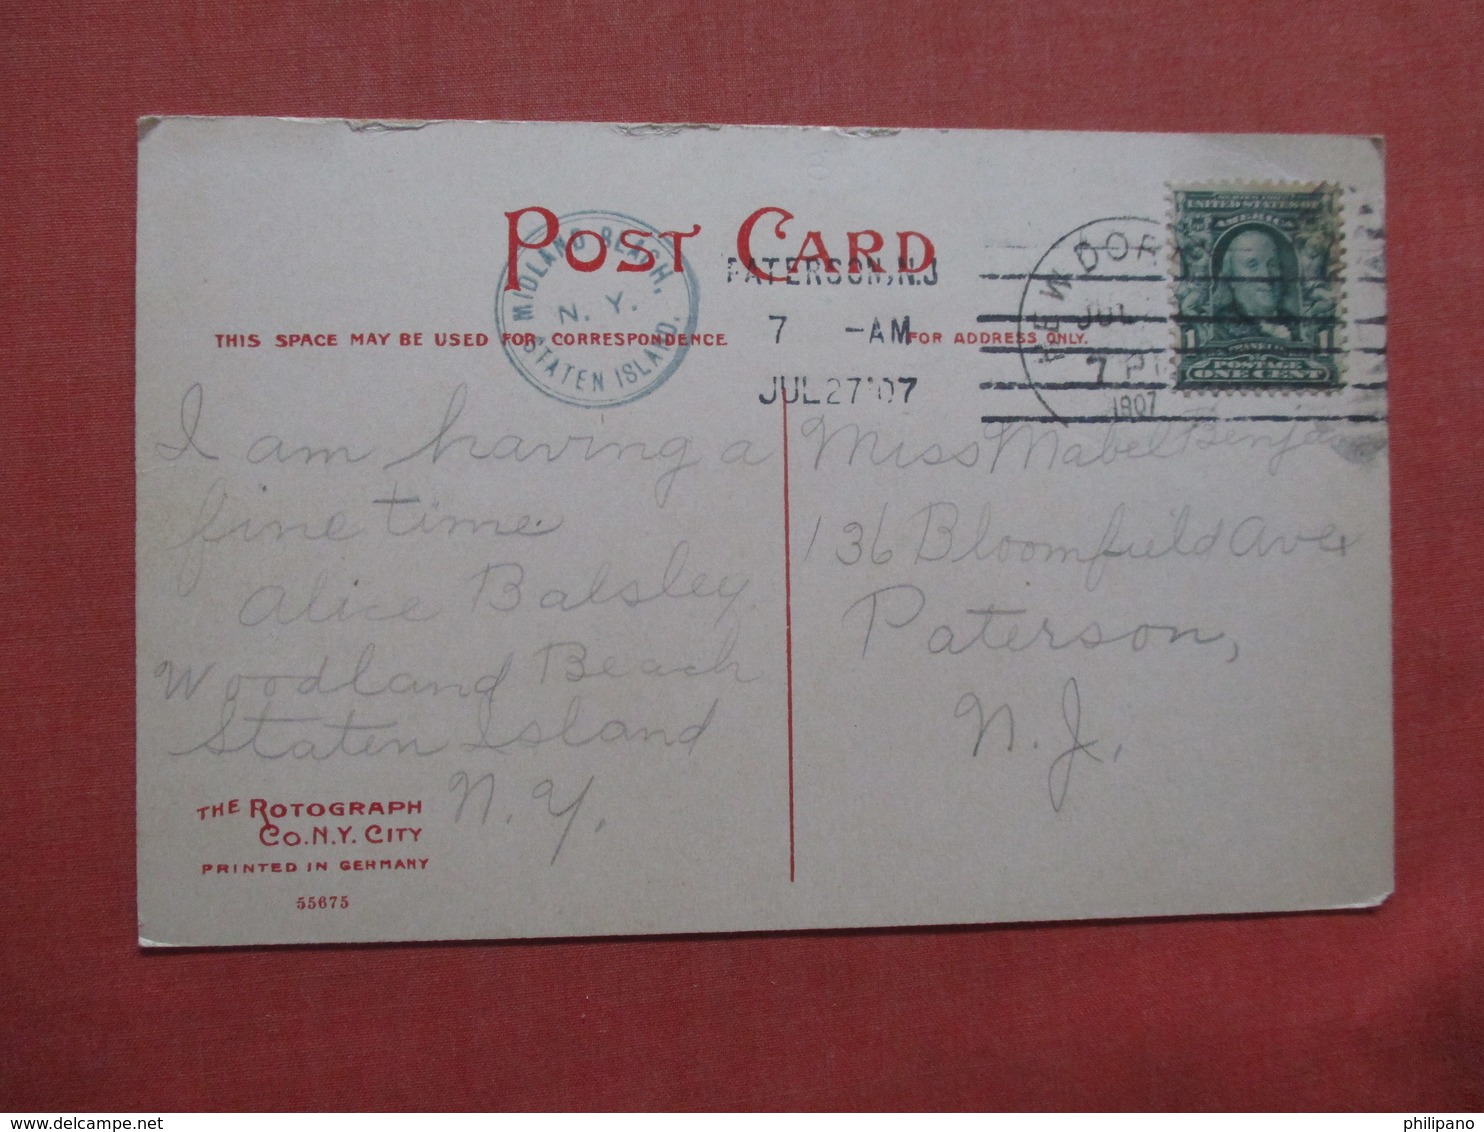 POST CARD
MIDLAND BEACH,
N. Y.
STATEN ISLAND.
PATERSON, N.J
7 -AM
JUL 27 '07
NEW DOR
JUL
7 P
1907
SERIES 1902
UNITED STATES OF
AMERICA
1 1
FRANKLIN
POSTAGE
ONE CENT
THIS SPACE MAY BE USED FOR CORRESPONDENCE
FOR ADDRESS ONLY.
I am having a
fine time.
Alice Balsley.
Woodland Beach
Staten Island
N. Y.
Miss Mabel
136 Bloomfield Ave
Paterson,
N. J.
THE ROTOGRAPH
CO. N.Y. CITY
PRINTED IN GERMANY
55675
www.delcampe.net
philipano